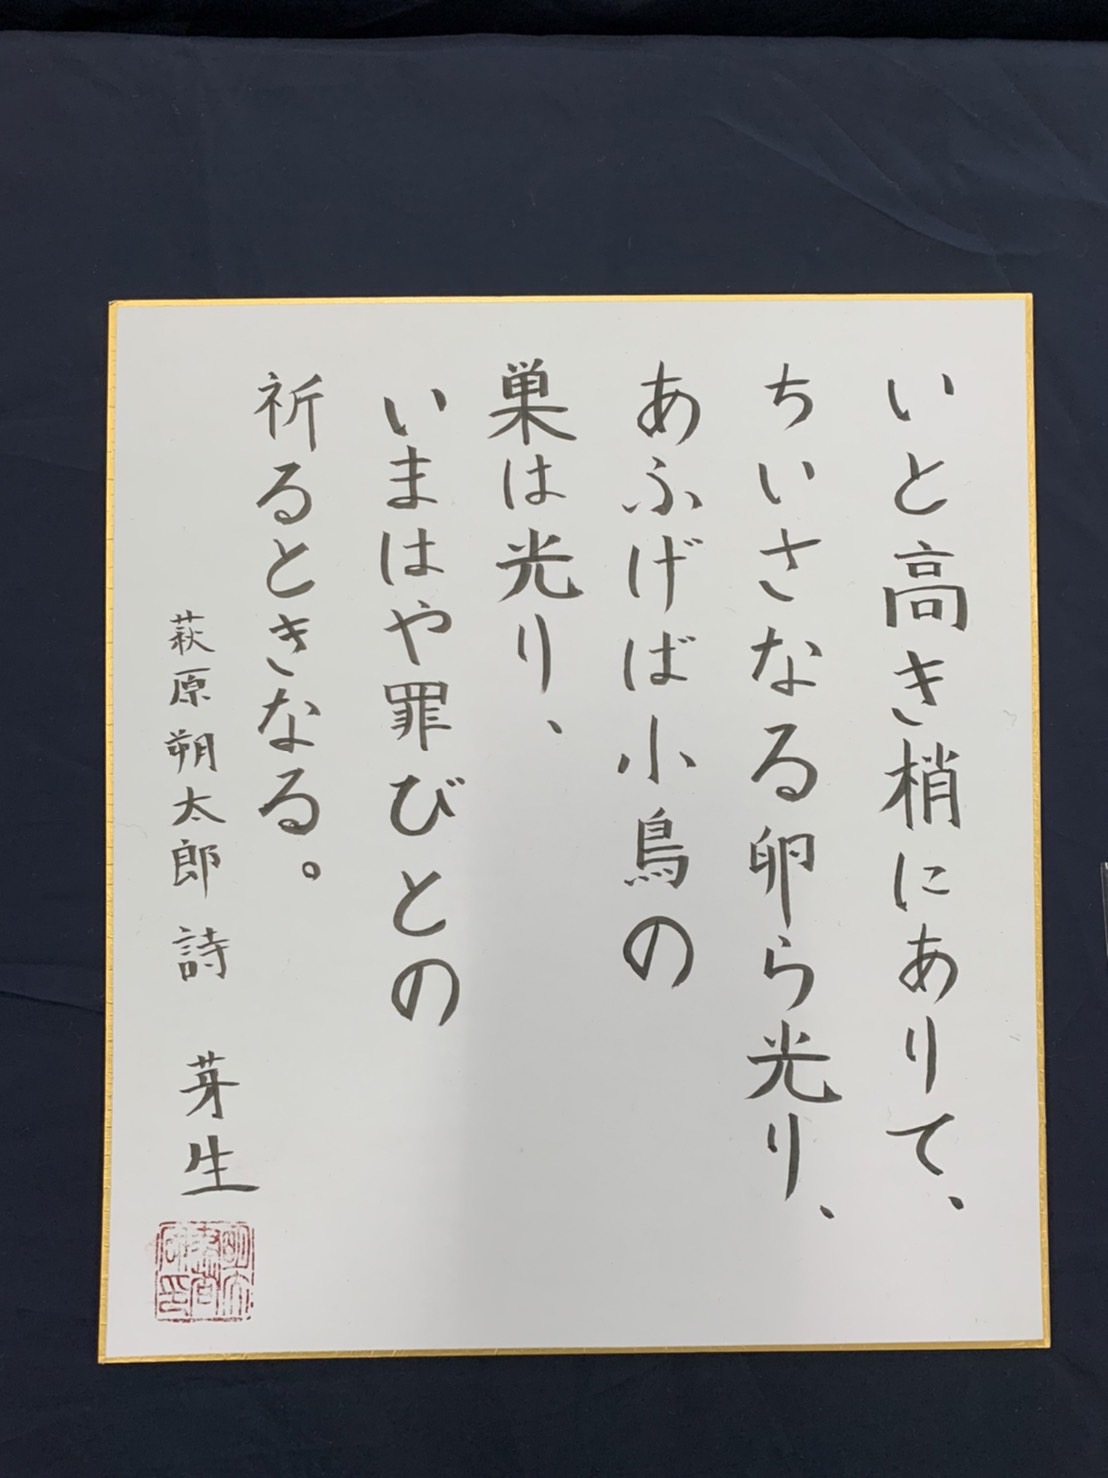 いと高き梢にありて、
ちいさなる卵ら光り、
あふげば小鳥の
巣は光り、
いまはや罪びとの
祈るときなる。
萩原朔太郎 詩 芽生